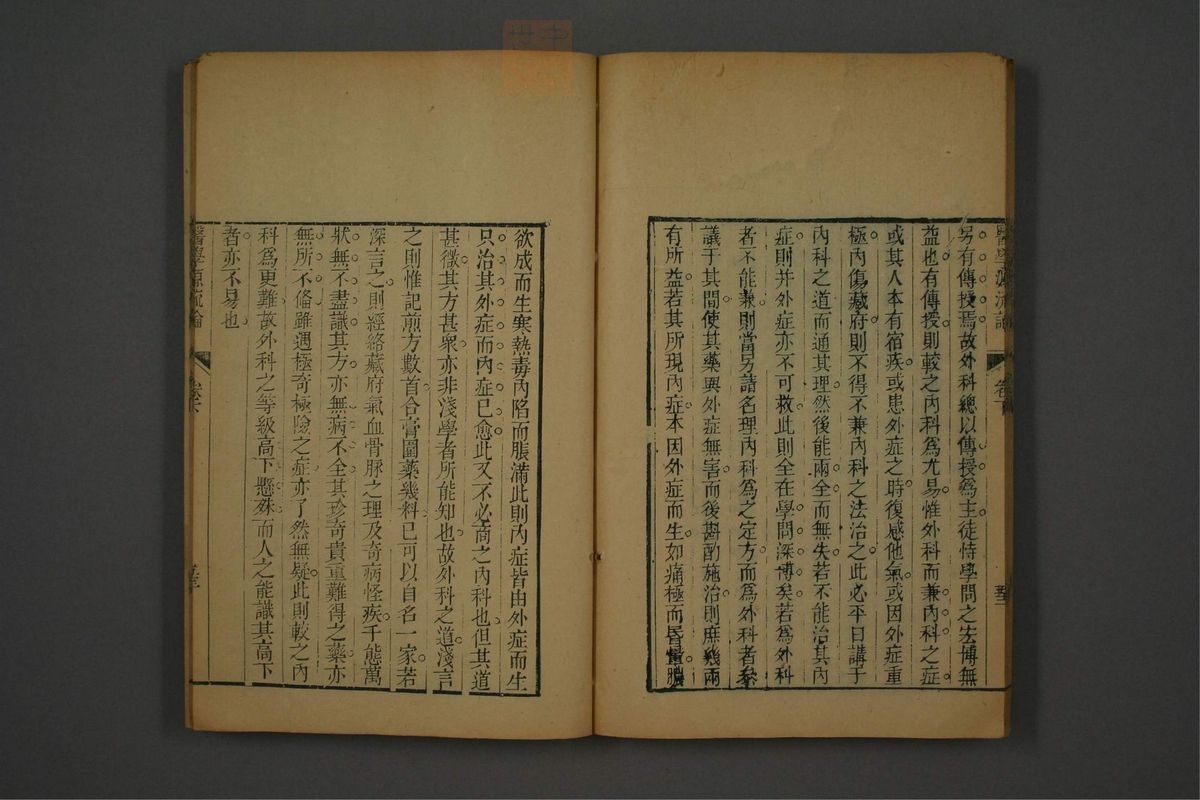 醫學源流論
卷下
另有傳授焉故外科總以傳授爲主徒恃學問之宏博無
益也有傳授則較之內科爲尤易惟外科而兼內科之症
或其人本有宿疾或患外症之時復感他氣或因外症重
極內傷藏府則不得不兼內科之法治之此必平日講于
內科之道而通其理然後能兩全而無失若不能治其內
症則并外症亦不可救此則全在學問深博矣若爲外科
者不能兼則當另請名理內科爲之定方而爲外科者參
議于其間使其藥與外症無害而後斟酌施治則庶幾兩
有所益若其所現內症本因外症而生如痛極而昏暈膿
欲成而生寒熱毒內陷而脹滿此則內症皆由外症而生
只治其外症而內症已愈此又不必商之內科也但其道
甚微其方甚衆亦非淺學者所能知也故外科之道淺言
之則惟記煎方數首合膏圍藥幾料已可以自名一家若
深言之則經絡藏府氣血骨脈之理及奇病怪疾千態萬
狀無不盡識其方亦無病不全其珍奇貴重難得之藥亦
無所不備雖遇極奇極險之症亦了然無疑此則較之內
科爲更難故外科之等級高下懸殊而人之能識其高下
者亦不易也
醫學源流論
卷下